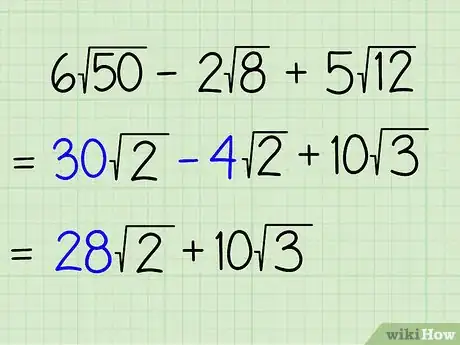 6√50 − 2√8 + 5√12
= 30√2 − 4√2 + 10√3
= 28√2 + 10√3
wikiHow